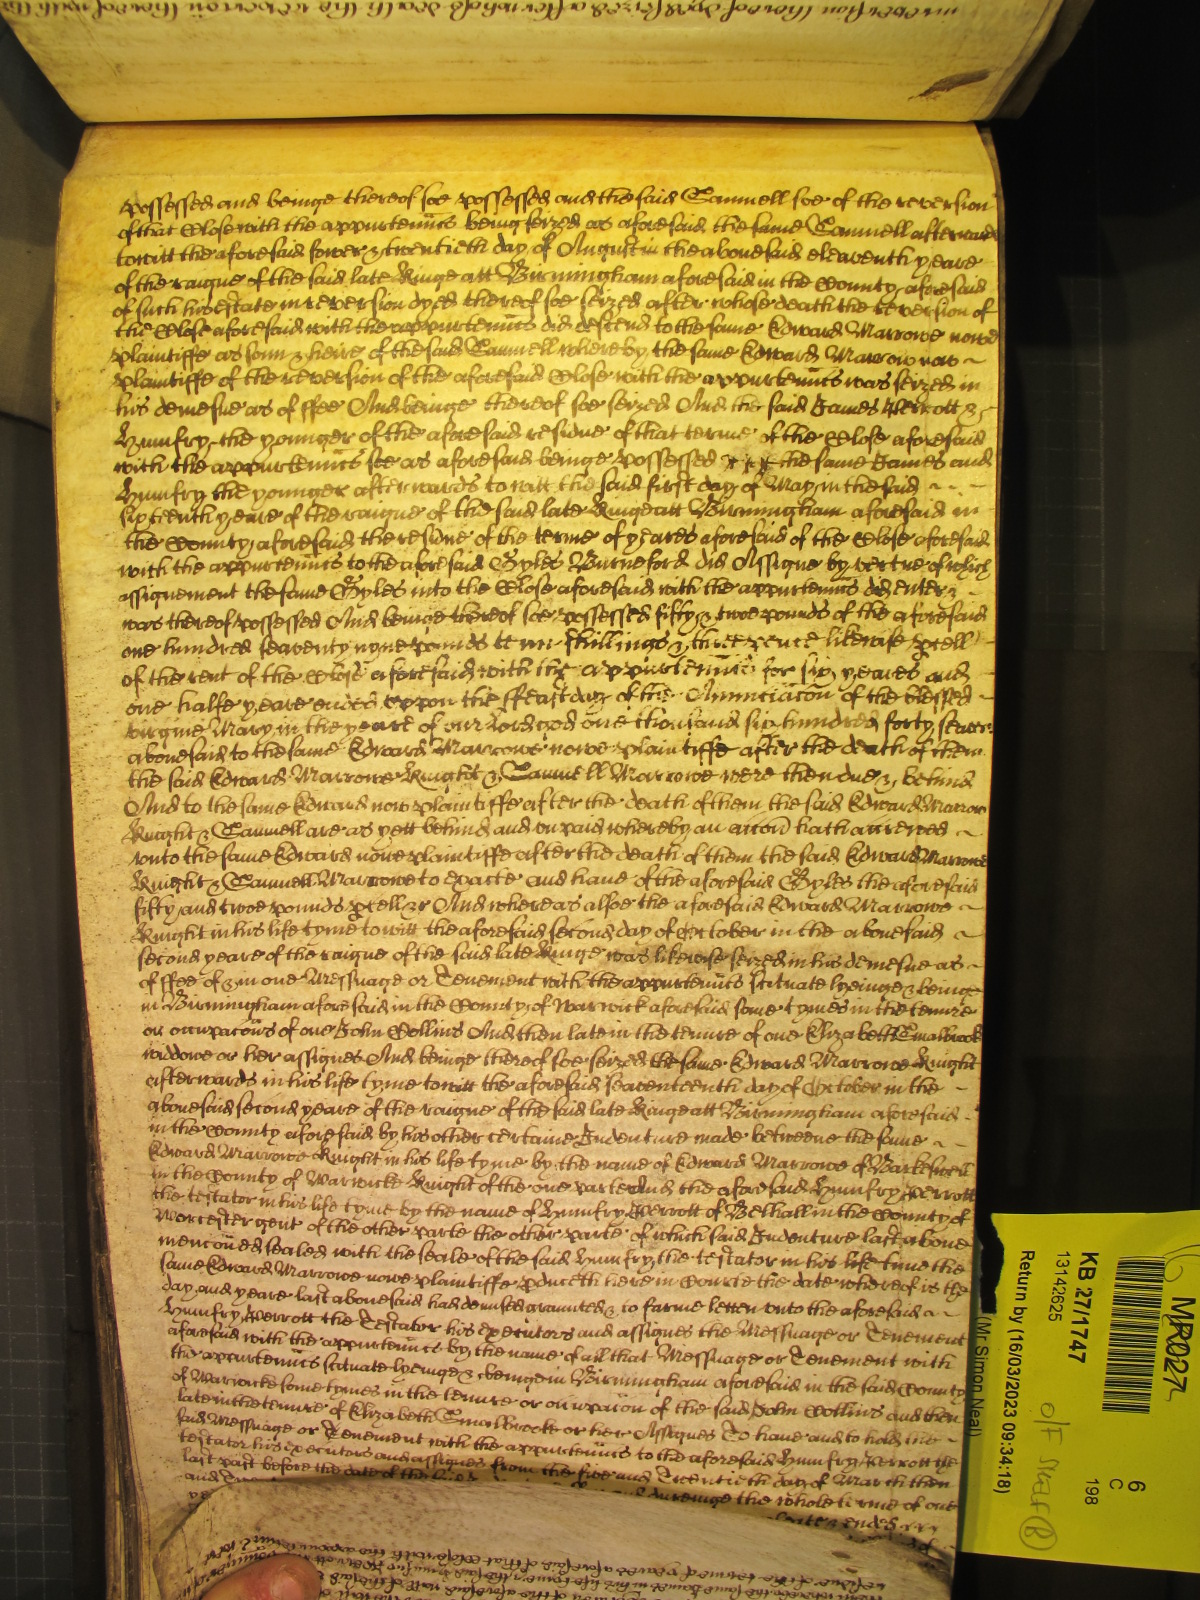 possessed and beinge thereof soe possessed and the said Samuell soe of the reversion
of that Close with the appurtenncs being seized as aforesaid the same Samuell afterwards
towitt the aforesaid fower & twentieth day of August in the abovesaid eleaventh yeare
of the raigne of the said late Kinge att Birmingham aforesaid in the County aforesaid
of such his estate in reversion dyed thereof soe seized after whose death the reversion of
the Close aforesaid with the appurtenncs did descend to the same Edward Marrowe nowe
plaintiffe as sonn & heire of the said Samuell whereby the same Edward Marrow now
plaintiffe of the reversion of the aforesaid Close with the appurtenncs was seized in
his demesne as of ffee And beinge thereof soe seized And the said James Perrott &
Humfry the younger of the aforesaid residue of that terme of the Close aforesaid
with the appurtenncs soe as aforesaid beinge possessed the same James and
Humfry the younger afterwards to witt the said first day of May in the said
sixteenth yeare of the raigne of the said late Kinge att Birmingham aforesaid in
the County aforesaid the residue of the terme of yeares aforesaid of the Close aforesaid
with the appurtenncs to the aforesaid Gyles Burneford did Assigne by vertue of which
assignement the same Gyles into the Close aforesaid with the appurtenncs did enter &
was thereof possessed And beinge thereof soe possessed fifty & twoe pounds of the aforesaid
one hundred seaventy nyne pounds tenn shillings & three pence likewise pcell
of the rent of the Close aforesaid with the appurtenncs for six yeares and
one halfe yeare ended uppon the ffeast day of the Anunciacon of the blessed
virgine Mary in the yeare of our Lord god one thousand six hundred forty seaven
abovesaid to the same Edward Marrowe nowe plaintiffe after the death of them
the said Edward Marrowe Knight & Samuell Marrowe were then due & behind
And to the same Edward now plaintiffe after the death of them the said Edward Marrow
Knight & Samuell are as yett behind and unpaid whereby an accon hath accrewed
unto the same Edward nowe plaintiffe after the death of them the said Edward Marrowe
Knight & Samuell Marrowe to exacte and have of the aforesaid Gyles the aforesaid
fifty and twoe pounds pcell &c And whereas alsoe the aforesaid Edward Marrowe
Knight in his life tyme towitt the aforesaid second day of October in the abovesaid
second yeare of the raigne of the said late Kinge was likewise seized in his demesne as
of ffee of & in one Messuage or Tenement with the appurtenncs scituate lyeinge & beinge
in Birmingham aforesaid in the County of Warwick aforesaid some tymes in the tenure
or occupacons of one John Collins And then late in the tenure of one Elizabeth Smalbrook
widdowe or her assignes And beinge thereof soe seized the same Edward Marrowe Knight
afterwards in his life tyme towitt the aforesaid seaventeenth day of October in the
abovesaid second yeare of the raigne of the said late Kinge att Birmingham aforesaid
in the County aforesaid by his other certaine Indenture made betweene the same
Edward Marrowe Knight in his life tyme by the name of Edward Marrowe of Barkswell
in the County of Warwicke Knight of the one parte And the aforesaid Humfry Perrott
the testator in his life tyme by the name of Humfry Perrott of Belhall in the County of
Worcester gent of the other parte the other parte of which said Indenture last above
menconed sealed with the seale of the said Humfry the testator in his life time the
same Edward Marrowe nowe plaintiffe pduceth here in Courte the date whereof is the
day and yeare last abovesaid had demised graunted & to farme letten unto the aforesaid
Humfry Perrott the Testator his executors and assignes the Messuage or Tenement
aforesaid with the appurtenncs by the name of all that Messuage or Tenement with
the appurtenncs scituate lyeinge & beinge in Birmingham aforesaid in the said County
of Warwicke some tymes in the tenure or occupacon of the said John Collins and then
late in the tenure of Elizabeth Smalbrooke or her Assignes To have and to hold the
said Messuage or Tenement with the appurtenncs to the aforesaid Humfry Perrott the
testator his executors and assignes from the five and Twentieth day of March then
last past before the date of the
and dureinge the whole terme of one
& ended
MR027
6
C
198
KB 27/1747
13142625
Return by (16/03/2023 09:34:18)
(Mr Simon Neal)